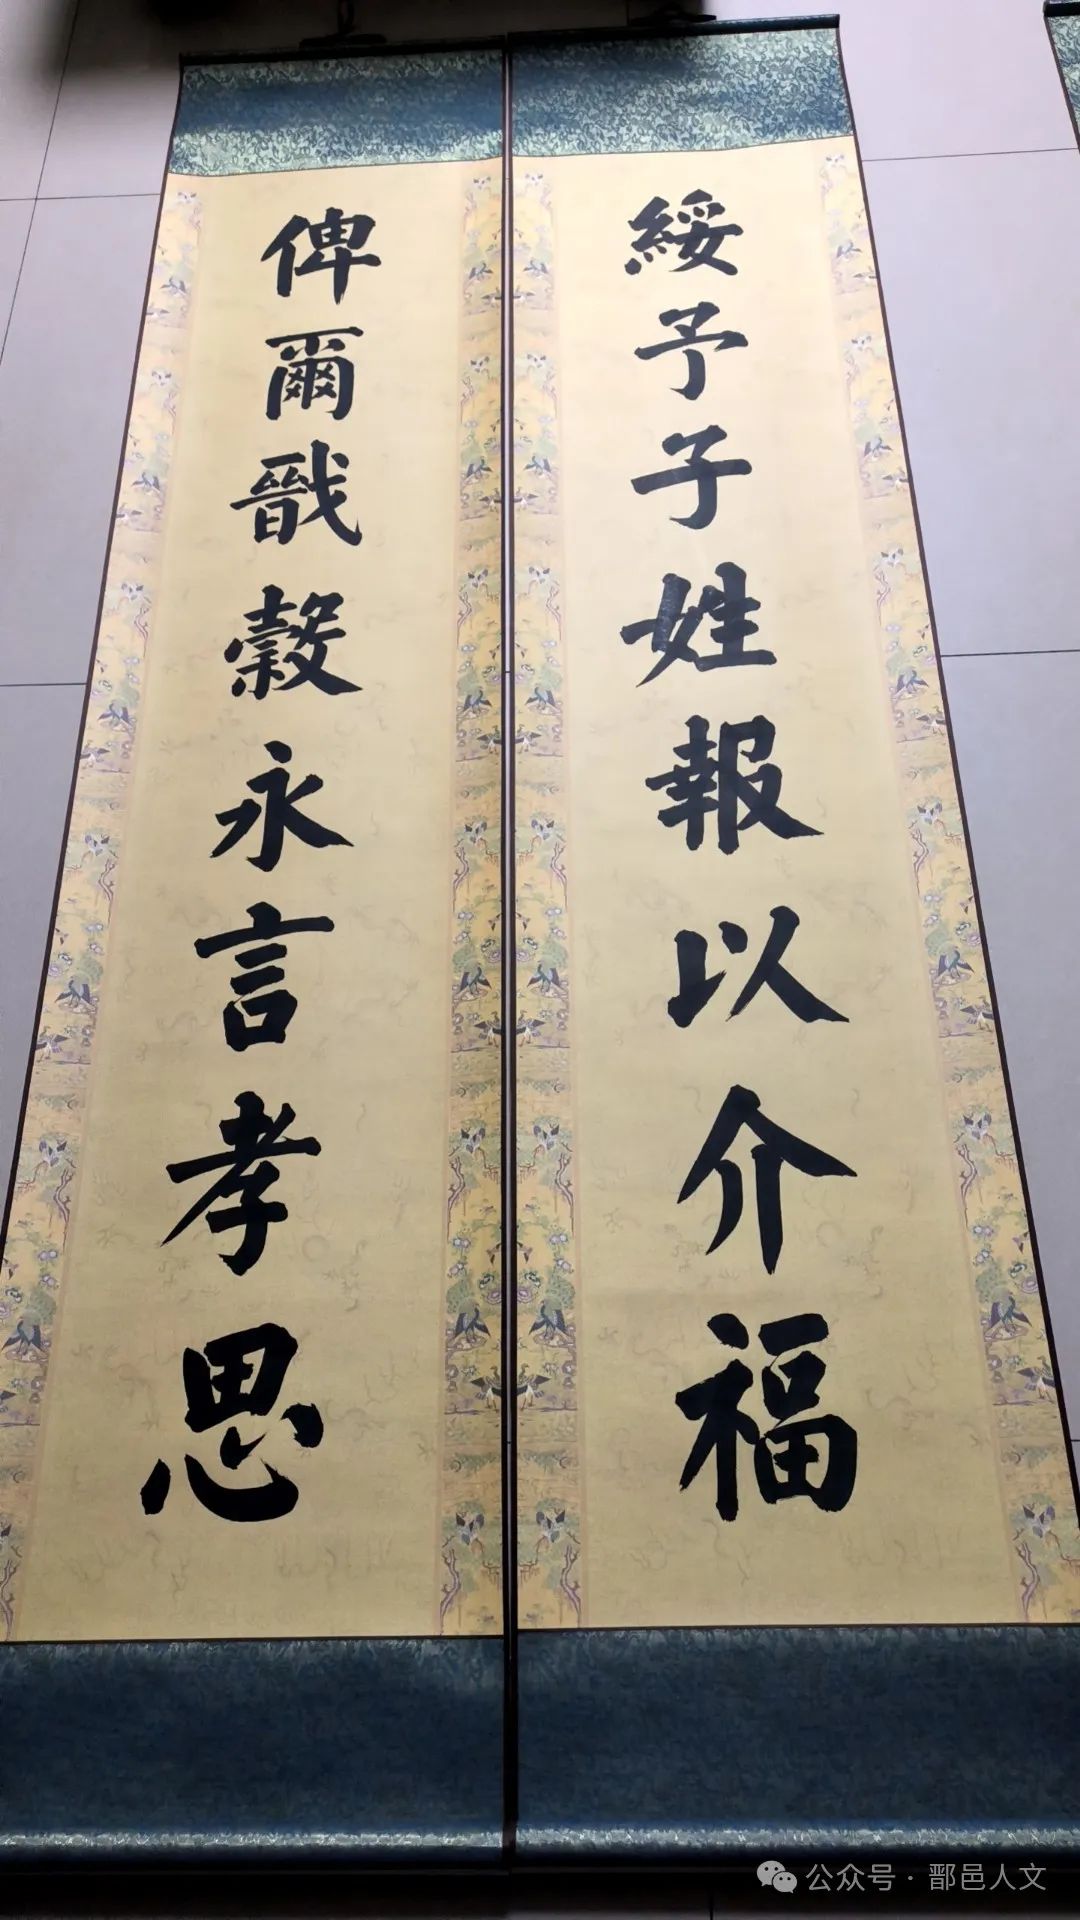 綏予子姓報以介福
俾爾戩穀永言孝思
公众号·鄑邑人文